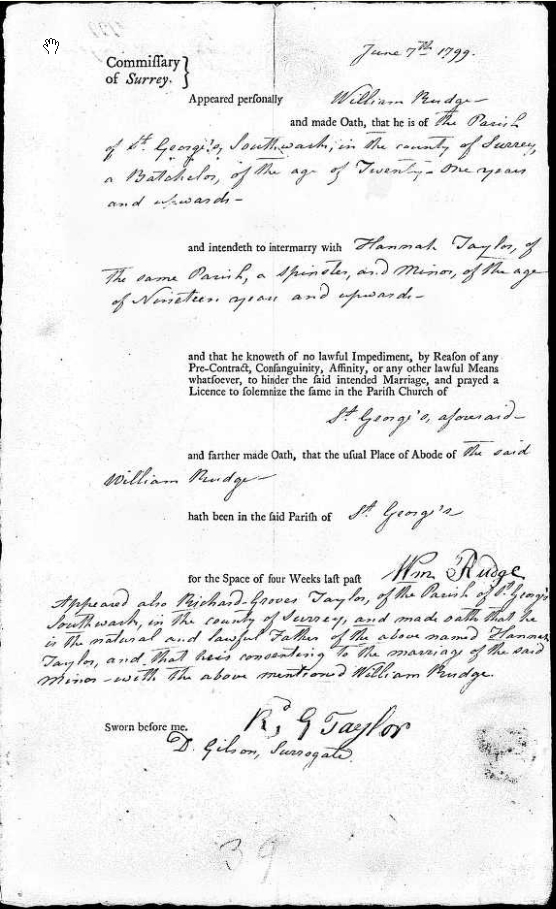 June 7th 1799.
Commiſſary
of Surrey. }
Appeared perſonally William Rudge
and made Oath, that he is of the Parish
of St. George's, Southwark, in the county of Surrey,
a Batchelor, of the age of Twenty-One years
and upwards-
and intendeth to intermarry with Hannah Taylor, of
the same Parish, a Spinster, and Minor, of the age
of Nineteen years and upwards-
and that he knoweth of no lawful Impediment, by Reaſon of any
Pre-Contract, Conſanguinity, Affinity, or any other lawful Means
whatſoever, to hinder the ſaid intended Marriage, and prayed a
Licence to ſolemnize the ſame in the Pariſh Church of
St George's, aforesaid-
and farther made Oath, that the uſual Place of Abode of the said
William Rudge-
hath been in the ſaid Pariſh of St George's
for the Space of four Weeks laſt paſt Wm Rudge
Appeared also Richard-Groves Taylor, of the Parish of St George's
Southwark, in the county of Surrey, and made oath that he
is the natural and lawful Father of the above named Hannah
Taylor, and that he is consenting to the marriage of the said
Minor-with the above mentioned William Rudge.
Sworn before me. Rd. G Taylor
D. Gilson, Surrogate
39